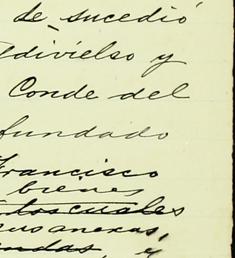 de sucedió
ldivielso y
Conde del
fundado
Francisco
bienes
los cuales
sus anexas,
y